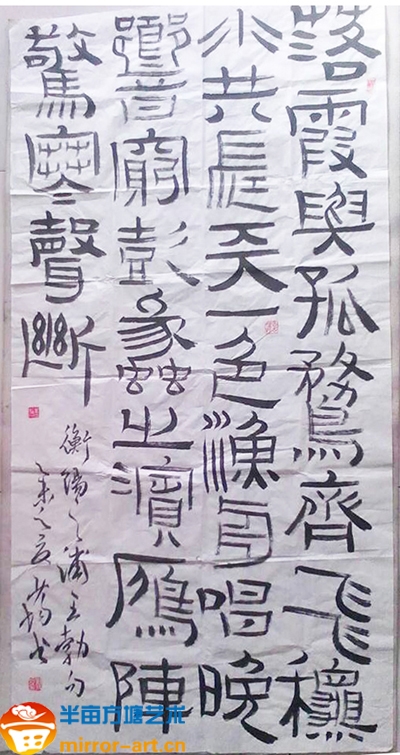 落霞與孤鶩齊飛穐
水共長天一色漁舟唱晚
響窮彭蠡之濱鴈陣
驚寒聲斷
衡陽之浦王勃句
乙未之夏
半亩方塘艺术
mirror-art.cn